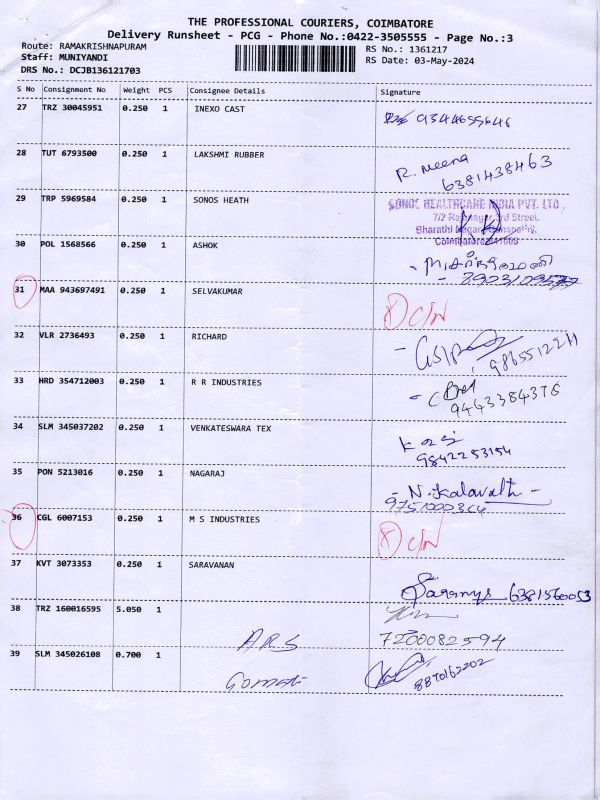 THE PROFESSIONAL COURIERS, COIMBATORE
Delivery Runsheet - PCG - Phone No.:0422-3505555 - Page No.:3
Route: RAMAKRISHNAPURAM RS No.: 1361217
Staff: MUNIYANDI RS Date: 03-May-2024
DRS No.: DCJB136121703
S No Consignment No Weight PCS Consignee Details Signature
27 TRZ 30045951 0.250 1 INEXO CAST
9344655646
28 TUT 6793500 0.250 1 LAKSHMI RUBBER
R. Meena
6381438463
29 TRP 5969584 0.250 1 SONOS HEATH
SONOS HEALTHCARE INDIA PVT. LTD.,
3rd Street,
30 POL 1568566 0.250 1 ASHOK
31 MAA 943697491 0.250 1 SELVAKUMAR
32 VLR 2736493 0.250 1 RICHARD
33 HRD 354712003 0.250 1 R R INDUSTRIES
9443384376
34 SLM 345037202 0.250 1 VENKATESWARA TEX
9842253154
35 PON 5213016 0.250 1 NAGARAJ
36 CGL 6007153 0.250 1 M S INDUSTRIES
37 KVT 3073353 0.250 1 SARAVANAN
6381560053
38 TRZ 160016595 5.050 1
A.R.S
7200082594
39 SLM 345026108 0.700 1
8870162202